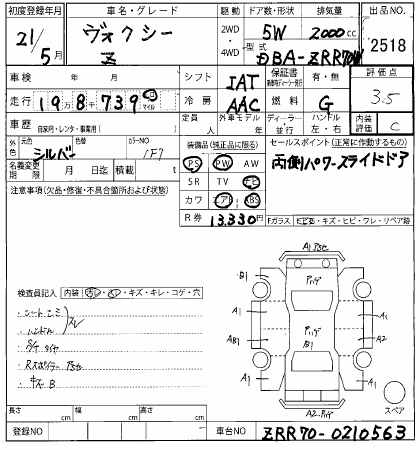 初度登録年月 車名・グレード 駆動 ドア数・形状 排気量 出品NO
21/5月 ヴォクシー Z 2WD 4WD 5W 2000cc 2518
型式 DBA-ZRR70W
車検 年 月 シフト IAT 保証書 有・無 評価点 3.5
走行 19万8千739 マイル 冷房 AAC 燃料 G
車歴 自家用・レンタ・事業用( ) 定員 人 外車モデル 年 ディーラー・並行 ハンドル 左・右 内装評価 C
外色 元色 シルバー 色替 カラーNO 1F7 装備品(純正品に限る) セールスポイント(正常に作動するもの)
名義変更期限 月 日迄 積載 t PS PW AW 両側パワースライドドア
注意事項(欠品・修復・不具合箇所および状態) SR TV ナビ
カワ エアB ABS
R券 13,330円 Fガラス トビ石・キズ・ヒビ・ワレ・リペア跡
A1 アセ
B1 ハゲ A1
A1 ハゲ A1
AB1 B1 A2
A1 A1
A2 ハゲ
スペア
検査員記入 内装 汚レ・スレ・キズ・キレ・コゲ・穴
・シートニミ
・ハンドルスレ
・S/T タイヤ
・Rスポイラーアセ
・キズB
長さ cm 幅 cm 高さ cm
登録NO 車台NO ZRR70-0210563